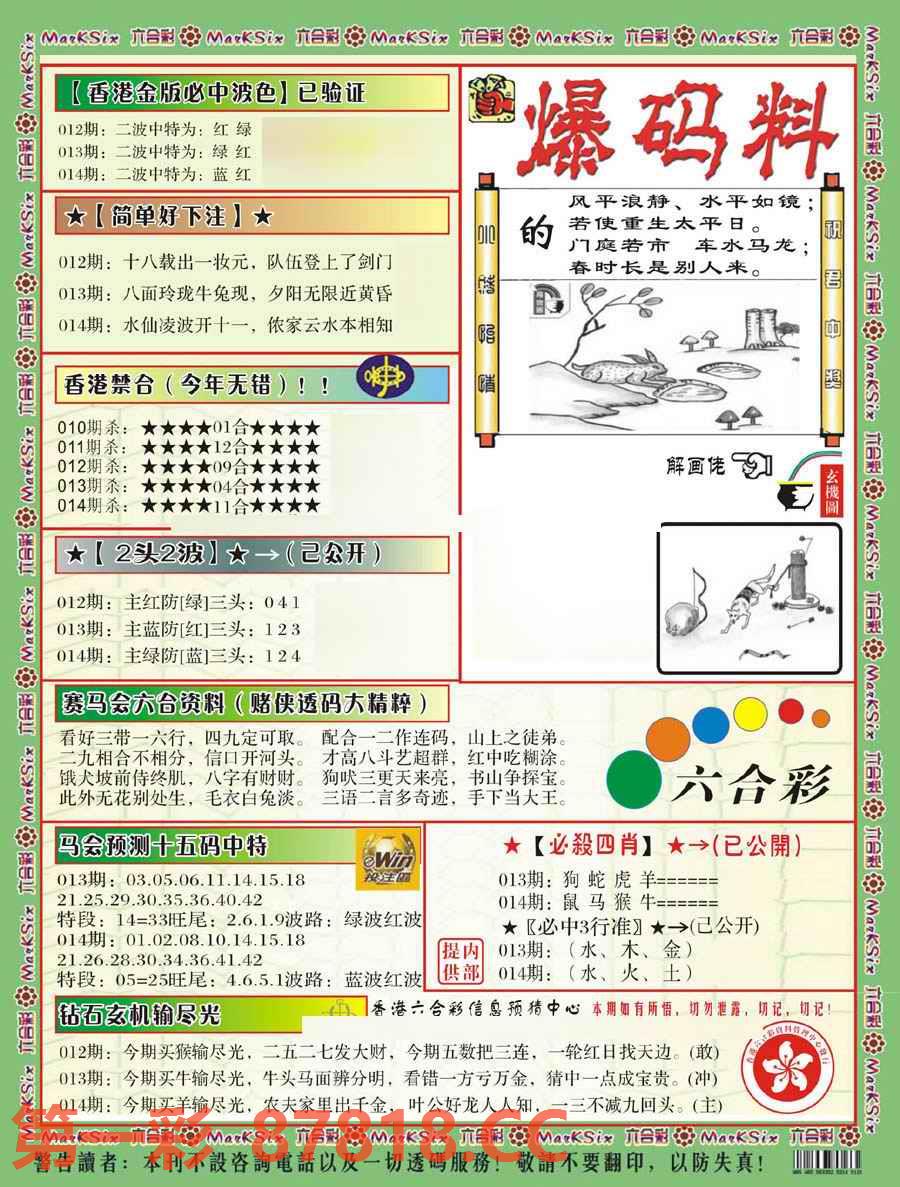 MarKSix 六合彩 MarKSix 六合彩 MarKSix 六合彩 MarKSix 六合彩 MarKSix 六合彩
【香港金版必中波色】已验证
012期：二波中特为：红 绿
013期：二波中特为：绿 红
014期：二波中特为：蓝 红
★【简单好下注】★
012期：十八载出一妆元，队伍登上了剑门
013期：八面玲珑牛兔现，夕阳无限近黄昏
014期：水仙凌波开十一，侬家云水本相知
香港禁合（今年无错）！！
010期杀：★★★★01合★★★★
011期杀：★★★★12合★★★★
012期杀：★★★★09合★★★★
013期杀：★★★★04合★★★★
014期杀：★★★★11合★★★★
★【 2头2波】★→(已公开)
012期：主红防[绿]三头：0 4 1
013期：主蓝防[红]三头：1 2 3
014期：主绿防[蓝]三头：1 2 4
爆码料
的
风平浪静、水平如镜；
若使重生太平日。
门庭若市 车水马龙；
春时长是别人来。
祝君中奖
解画佬
玄機圖
赛马会六合资料（赌侠透码大精粹）
看好三带一六行，四九定可取。 配合一二作连码，山上之徒弟。
二九相合不相分，信口开河头。 才高八斗艺超群，红中吃糊涂。
饿犬坡前侍终肌，八字有财财。 狗吠三更天来亮，书山争探宝。
此外无花别处生，毛衣白兔淡。 三语二言多奇迹，手下当大王。
六合彩
马会预测十五码中特
eWin
投注區
013期：03.05.06.11.14.15.18
21.25.29.30.35.36.40.42
特段：14=33旺尾：2.6.1.9波路：绿波红波
014期：01.02.08.10.14.15.18
21.26.28.30.34.36.41.42
特段：05=25旺尾：4.6.5.1波路：蓝波红波
★【必殺四肖】★→(已公開)
013期：狗 蛇 虎 羊======
014期：鼠 马 猴 牛======
★〖必中3行准〗★→(已公开)
013期：（水、木、金）
014期：（水、火、土）
提内
供部
钻石玄机输尽光
香港六合彩信息预猜中心 本期如有所悟，切勿泄露，切记，切记！
012期：今期买猴输尽光，二五二七发大财，今期五数把三连，一轮红日找天边。(敢)
013期：今期买牛输尽光，牛头马面辨分明，看错一方亏万金，猜中一点成宝贵。(冲)
014期：今期买羊输尽光，农夫家里出千金，叶公好龙人人知，一三不减九回头。(主)
第一彩 87818.CC
MarKSix 六合彩 MarKSix 六合彩 MarKSix 六合彩 MarKSix 六合彩 MarKSix 六合彩
警告讀者：本刊不設咨詢電話以及一切透碼服務！敬請不要翻印，以防失真！